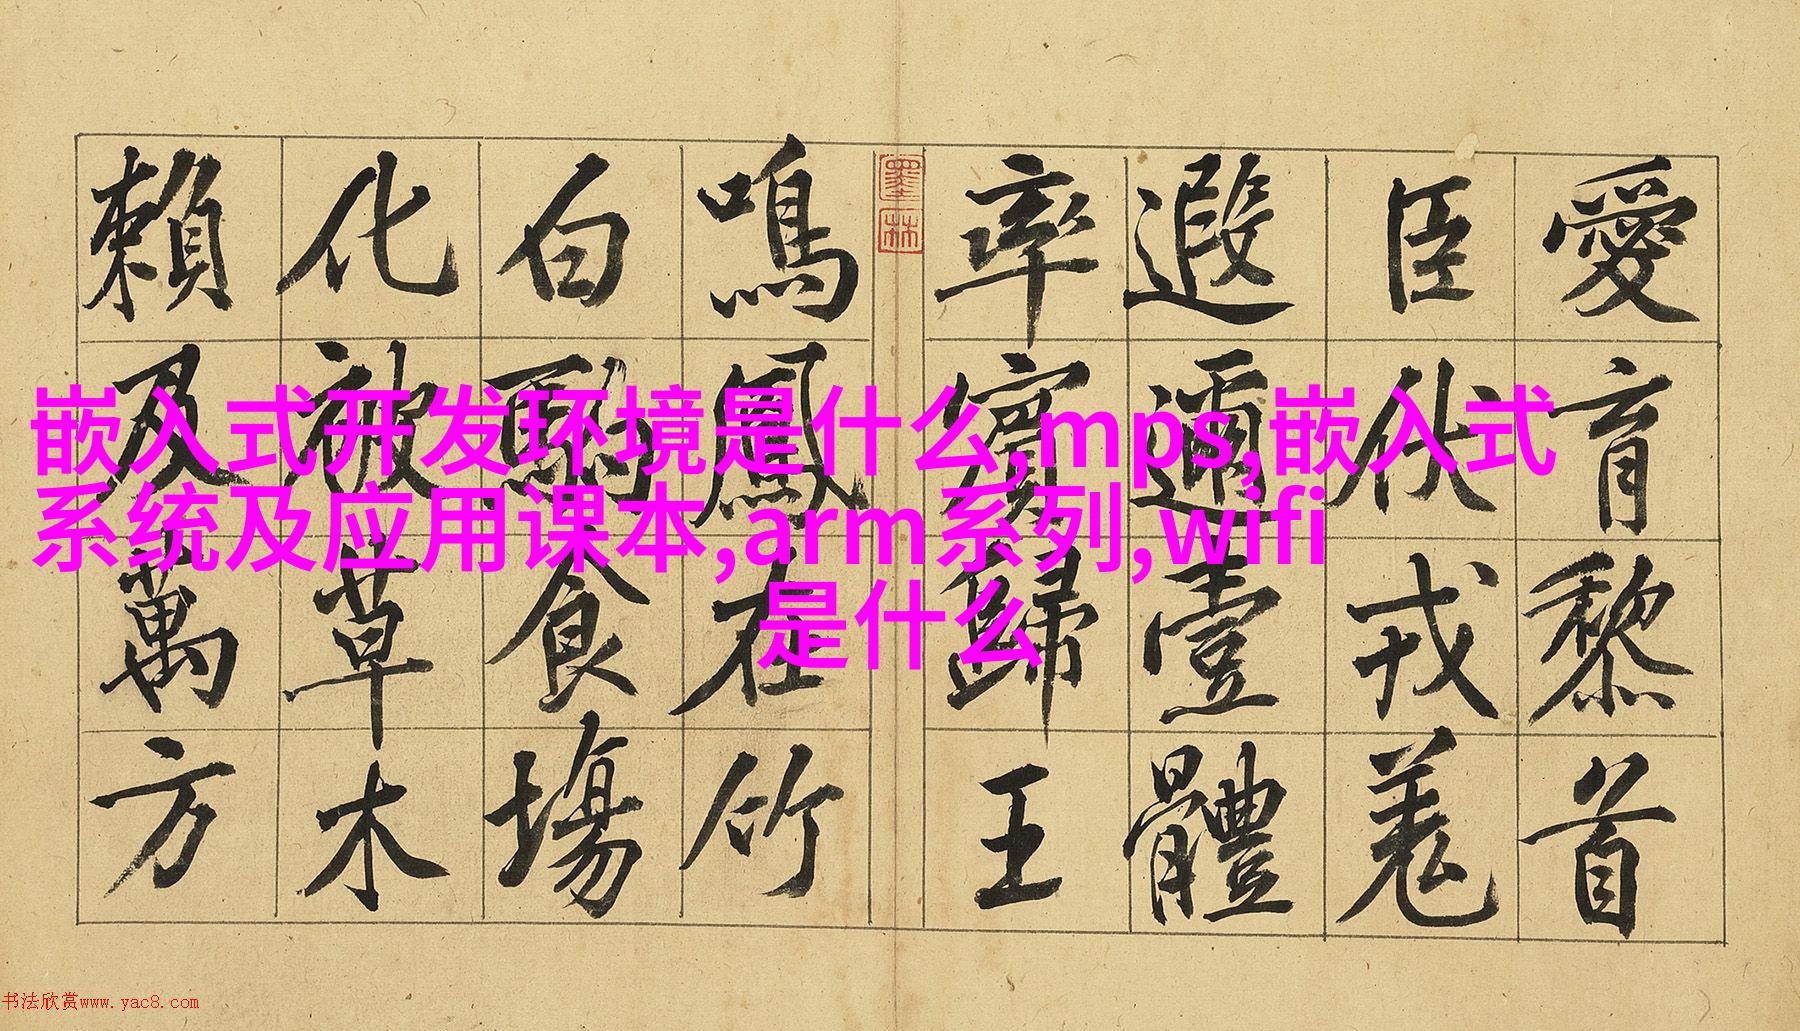 愛育黎首
臣伏戎羌
遐邇壹體
率賓歸王
墨林
鳴鳳在竹
白駒食場
化被草木
賴及萬方
嵌入式开发环境是什么,mps,嵌入式
系统及应用课本,arm系列,wifi
是什么
书法欣赏www.yac8.com